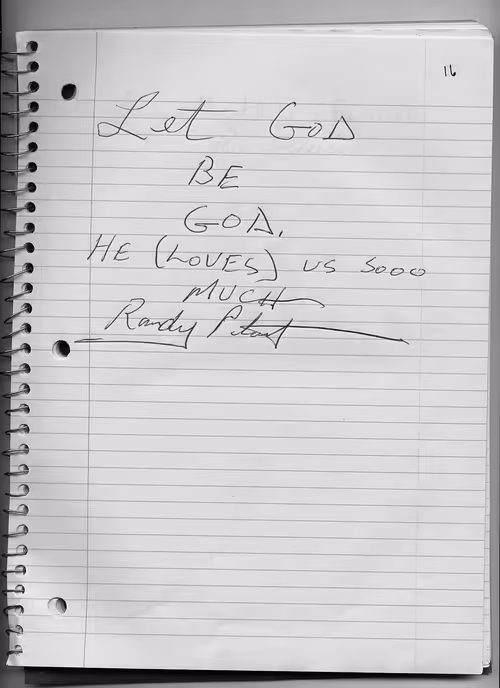 16
Let GOD
BE
GOD.
HE (LOVES) US SOOO
MUCH
Randy